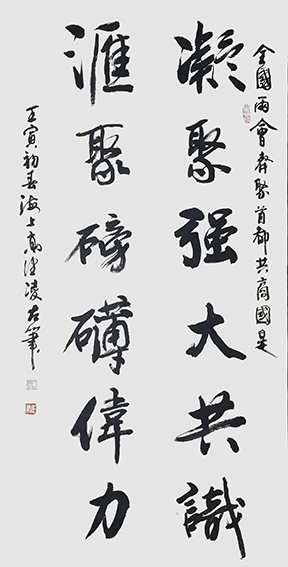 全國兩會齊聚首都共商國是
凝聚强大共識
滙聚磅礴偉力
壬寅初春海上凌左筆